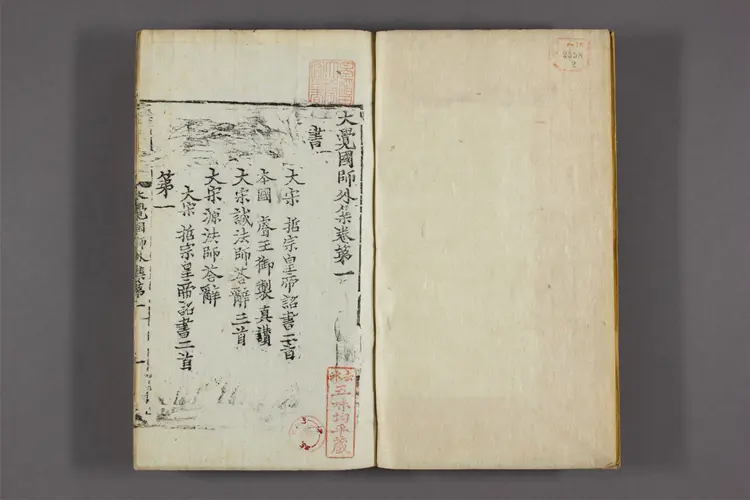 大覺國師外集卷第一
書
大宋 哲宗皇帝詔書二首
本國 睿王御製真讚
大宋誠法師荅辭三首
大宋源法師荅辭
大宋 哲宗皇帝詔書二首
第一
大覺國師外集第一
五味均平藏